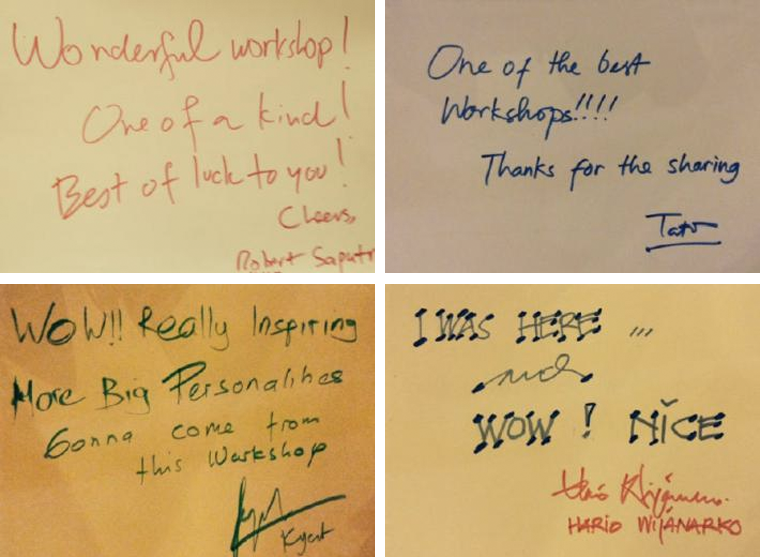 Wonderful workshop!
One of a kind!
Best of luck to you!
Cheers,
Robert
One of the best
Workshops!!!!
Thanks for the sharing
WOW!! Really Inspiring
More Big Personalities
Gonna come from
this Workshop
I WAS HERE ...
and
WOW! NICE
HARIO WIJÁNARKO